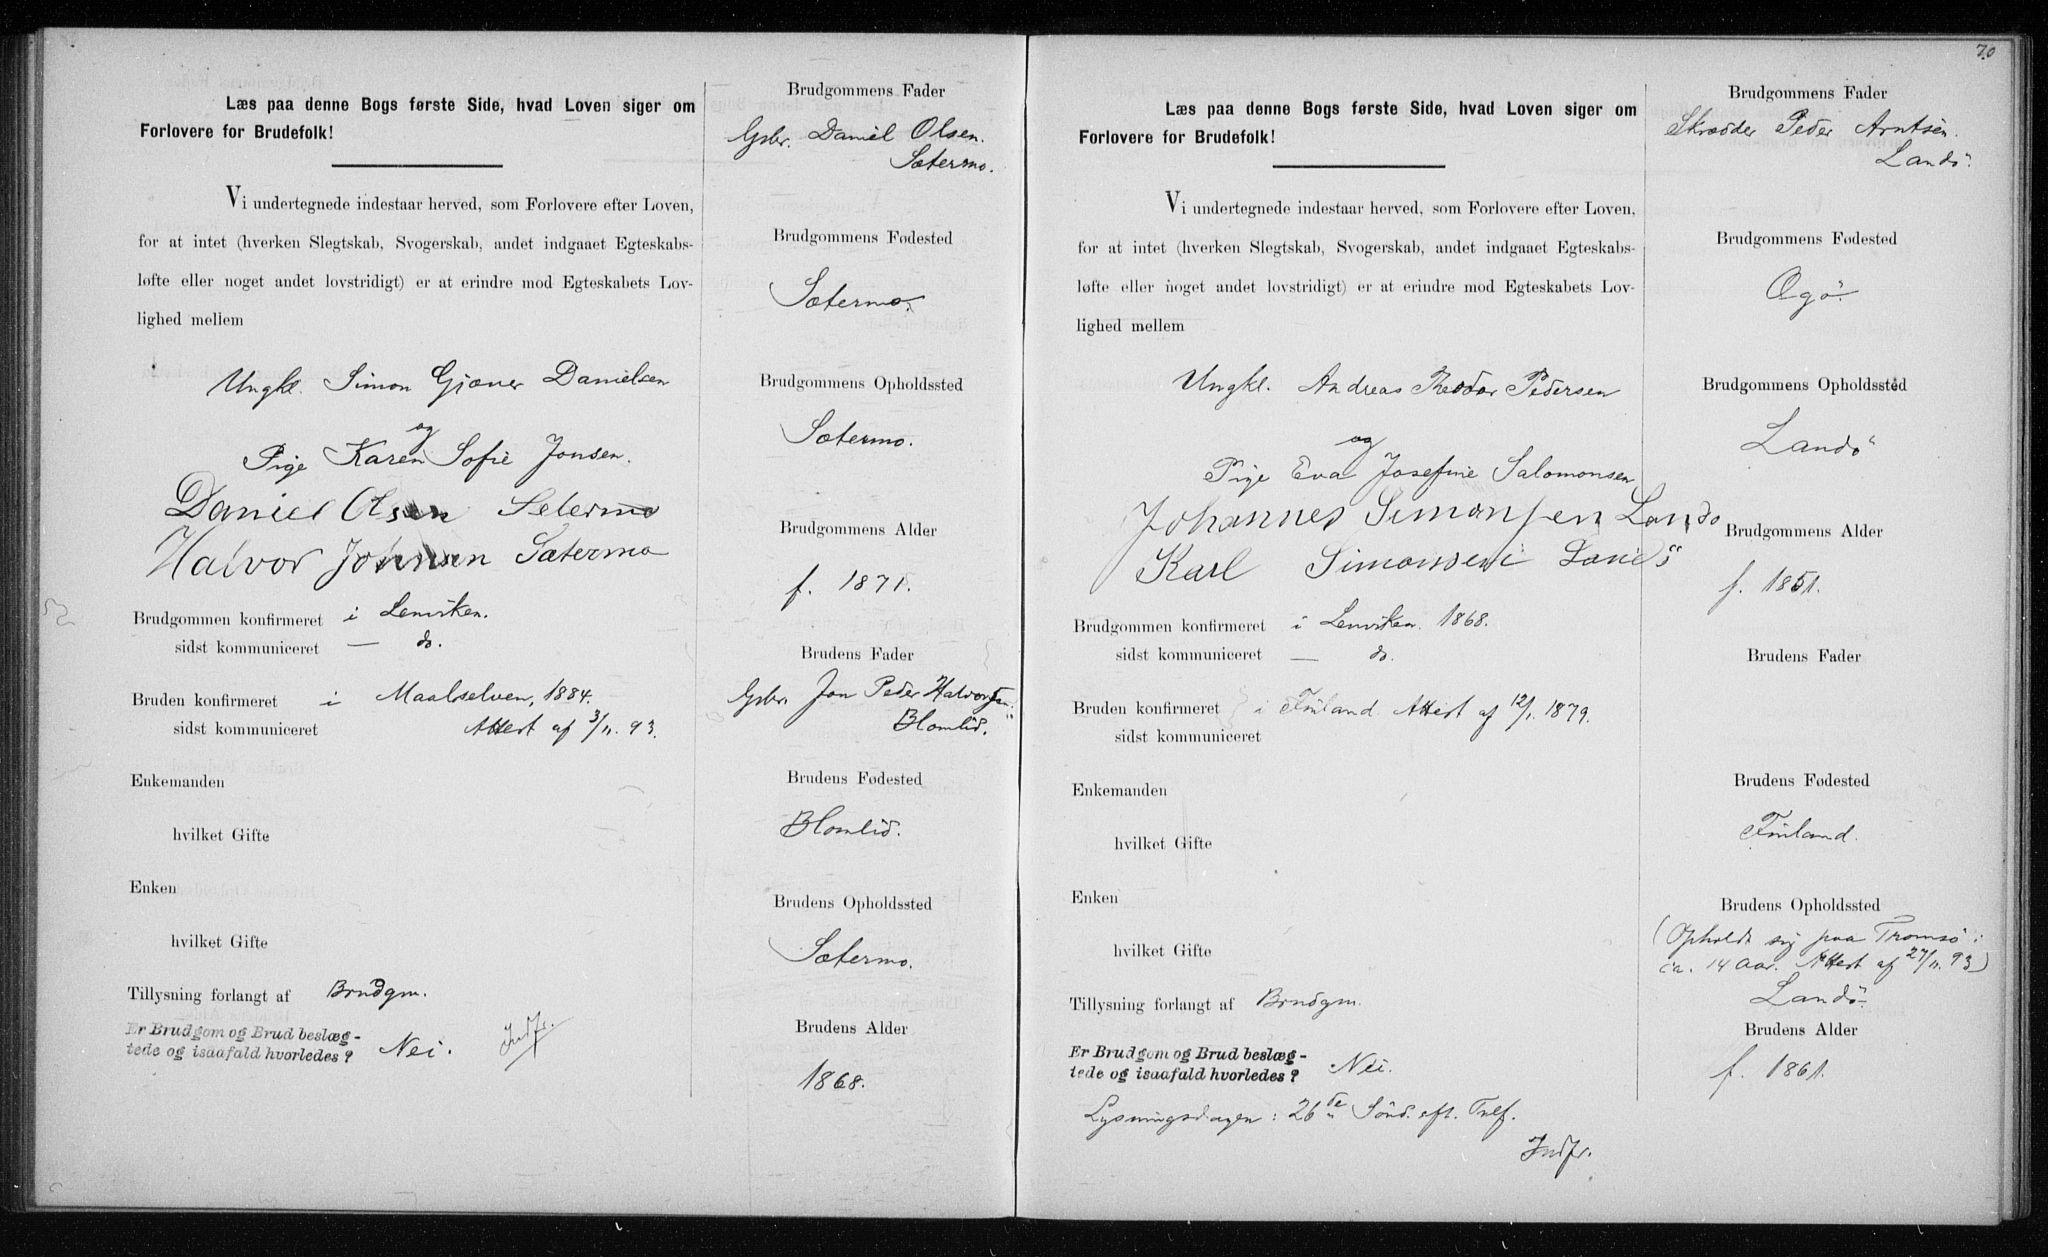 Læs paa denne Bogs første Side, hvad Loven siger om
Forlovere for Brudefolk!
Vi undertegnede indestaar herved, som Forlovere efter Loven,
for at intet (hverken Slegtskab, Svogerskab, andet indgaaet Egteskabs-
løfte eller noget andet lovstridigt) er at erindre mod Egteskabets Lov-
lighed mellem
Ungkl. Simon Gjæver Danielsen
og
Pige Karen Sofie Jonsen.
Daniel Olsen Setermo
Halvor Johnsen Sætermo
Brudgommen konfirmeret i Lenviken.
sidst kommuniceret — do.
Bruden konfirmeret i Maalselven, 1884.
sidst kommuniceret Attest af 3/11. 93.
Enkemanden
hvilket Gifte
Enken
hvilket Gifte
Tillysning forlangt af Brudgm.
Er Brudgom og Brud beslæg-
tede og isaafald hvorledes? Nei. Indfr.
Brudgommens Fader
Gbr. Daniel Olsen.
Sætermo.
Brudgommens Fødested
Sætermo.
Brudgommens Opholdssted
Sætermo.
Brudgommens Alder
f. 1871.
Brudens Fader
Gbr. Jon Peder Halvorsen
Blomlid.
Brudens Fødested
Blomlid.
Brudens Opholdssted
Sætermo.
Brudens Alder
1868.
70
Læs paa denne Bogs første Side, hvad Loven siger om
Forlovere for Brudefolk!
Vi undertegnede indestaar herved, som Forlovere efter Loven,
for at intet (hverken Slegtskab, Svogerskab, andet indgaaet Egteskabs-
løfte eller noget andet lovstridigt) er at erindre mod Egteskabets Lov-
lighed mellem
Ungkl. Andreas Pedersen
og
Pige Eva Josefine Salomonsen
Johannes Simonsen Landö
Karl Simonsen Landö
Brudgommen konfirmeret i Lenviken. 1868.
sidst kommuniceret — do.
Bruden konfirmeret } i Finland. Attest af 12/1. 1879.
sidst kommuniceret
Enkemanden
hvilket Gifte
Enken
hvilket Gifte
Tillysning forlangt af Brudgm.
Er Brudgom og Brud beslæg-
tede og isaafald hvorledes? Nei.
Lysningsdagen: 26de Sönd. eft. Tref.
Indfr.
Brudgommens Fader
Skrædder Peder Arntsen.
Landö.
Brudgommens Fødested
Ogö.
Brudgommens Opholdssted
Landö
Brudgommens Alder
f. 1851.
Brudens Fader
Brudens Fødested
Finland.
Brudens Opholdssted
(Opholdt sig paa Tromsö i
ca. 14 Aar. Attest af 27/11. 93)
Landö
Brudens Alder
f. 1861.